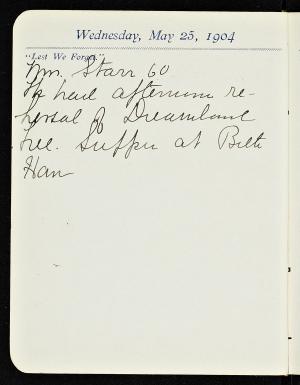 Wednesday, May 25, 1904
"Lest We Forget."
Wm. Starr 60
To hear afternoon re-
hersal of Dreamland
Tree. Supper at Bilt
Han